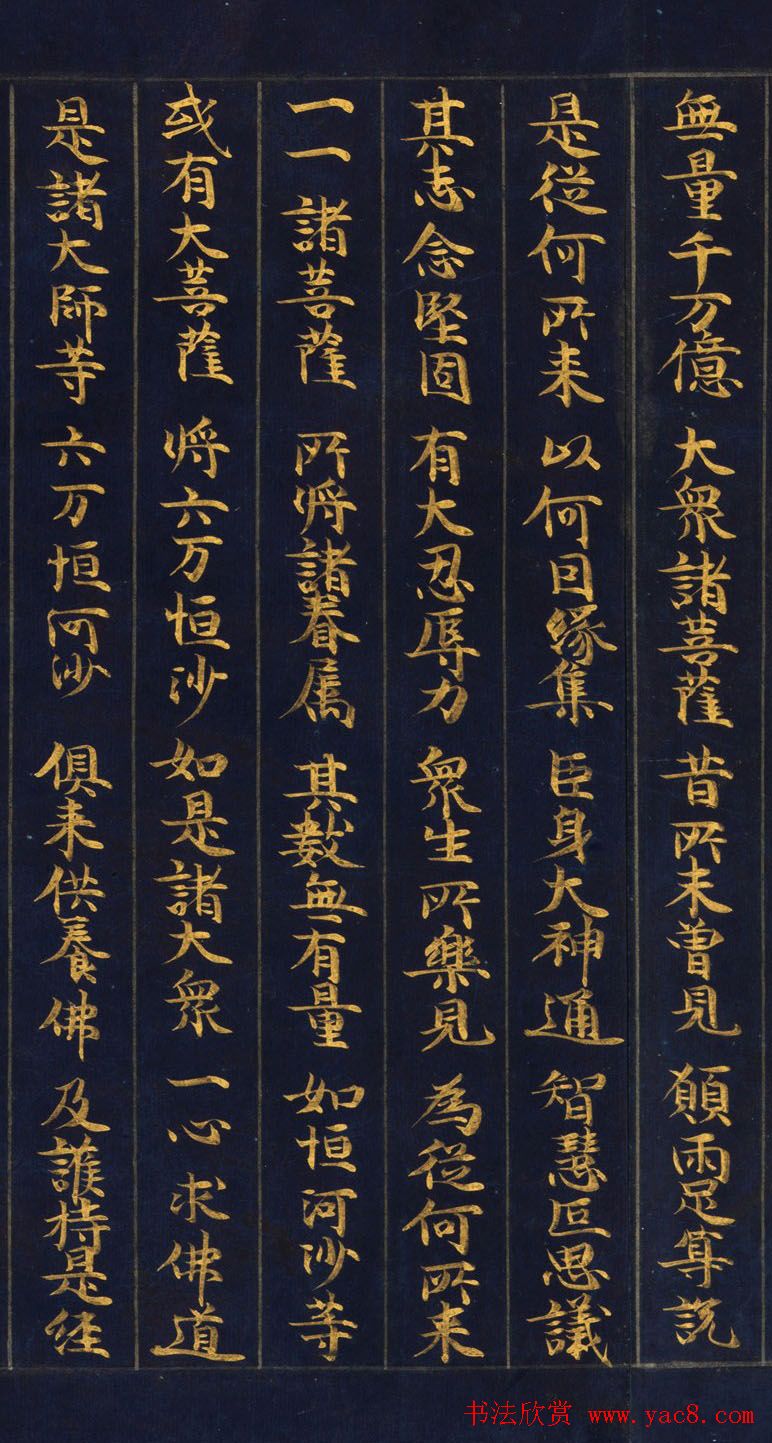 無量千万億 大衆諸菩薩 昔所未曽見 願兩足尊説
是從何所来 以何因縁集 巨身大神通 智慧叵思議
其志念堅固 有大忍辱力 衆生所樂見 為從何所来
一一諸菩薩 所将諸眷属 其數無有量 如恒河沙等
或有大菩薩 将六万恒沙 如是諸大衆 一心求佛道
是諸大師等 六万恒河沙 俱来供養佛 及護持是經
书法欣赏 www.yac8.com